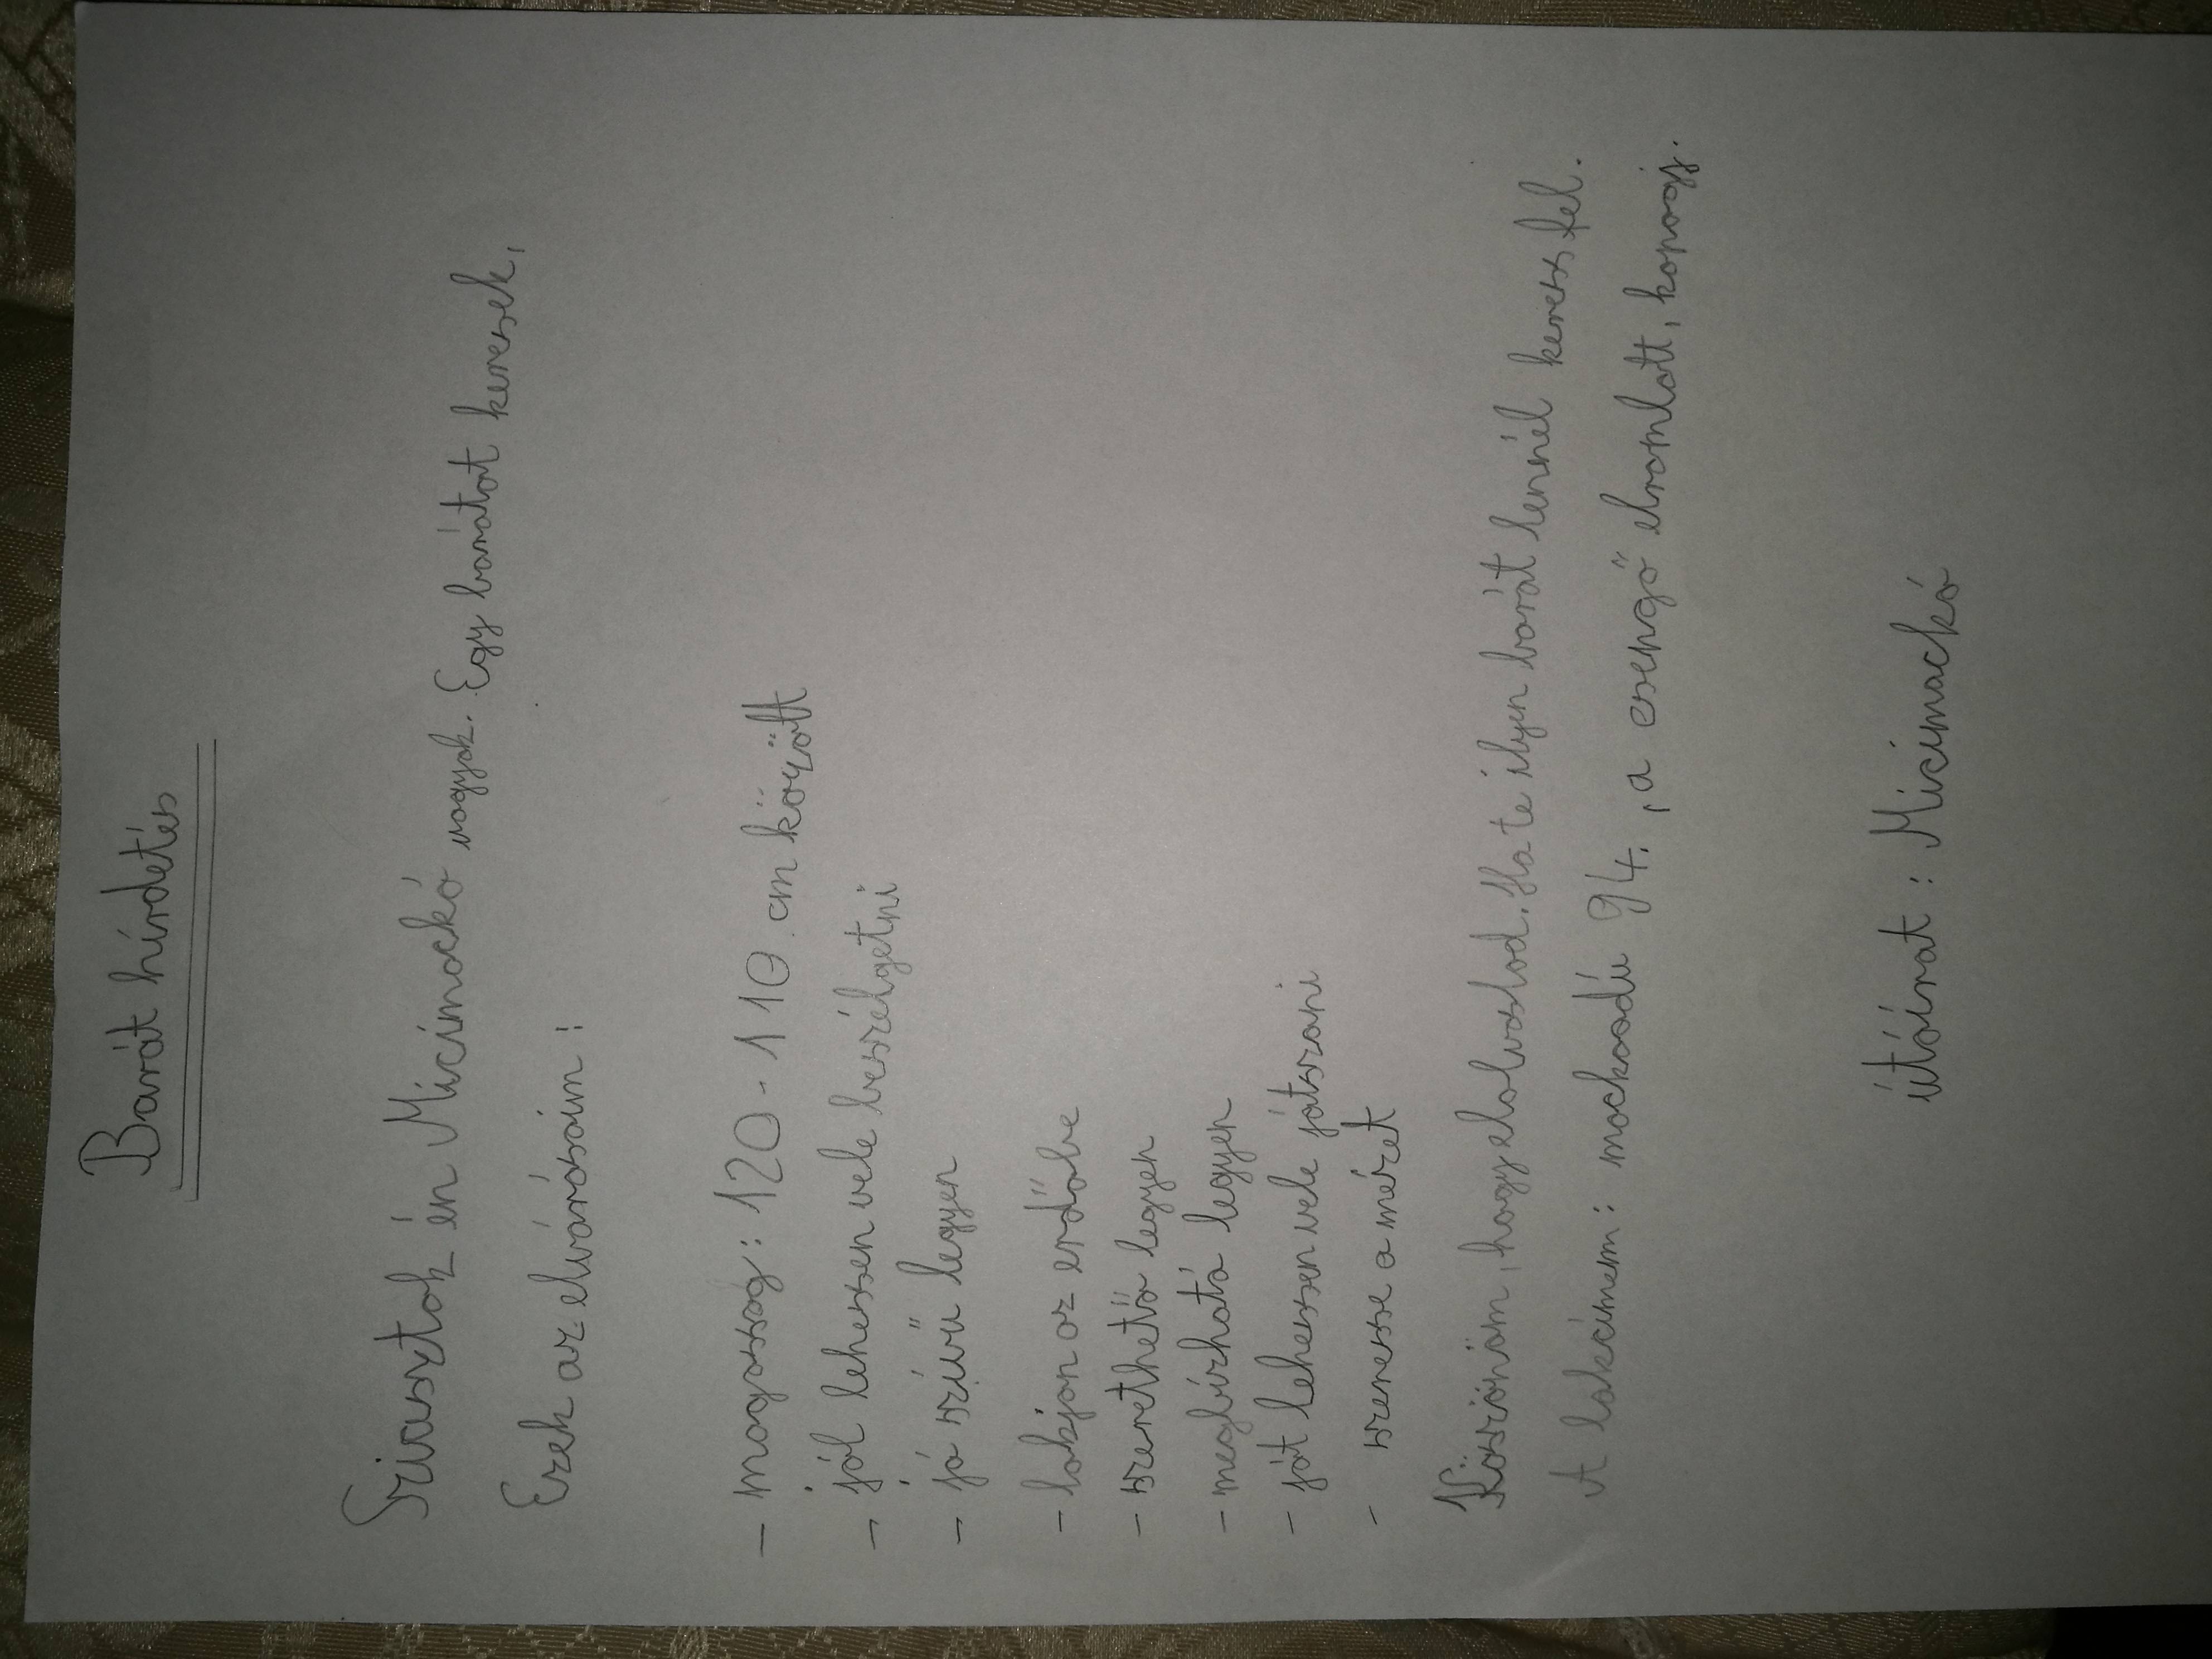 Barát hírdetés
Sziasztok én Micimackó vagyok. Egy barátot keresek,
Ezek az elvárásaim:
- magasság: 120-110 cm között
- jól lehessen vele beszélgetni
- jó szívű legyen
- lakjon az erdőbe
- szerethető legyen
- megbízható legyen
- jót lehessen vele játszani
- szeresse a mézet
Köszönöm, hogy elolvastad. Ha te ilyen barát lennél keress fel.
A lakcímem: mackóodú 94. , a csengő elromlott, kopogj.
útóirat: Micimackó